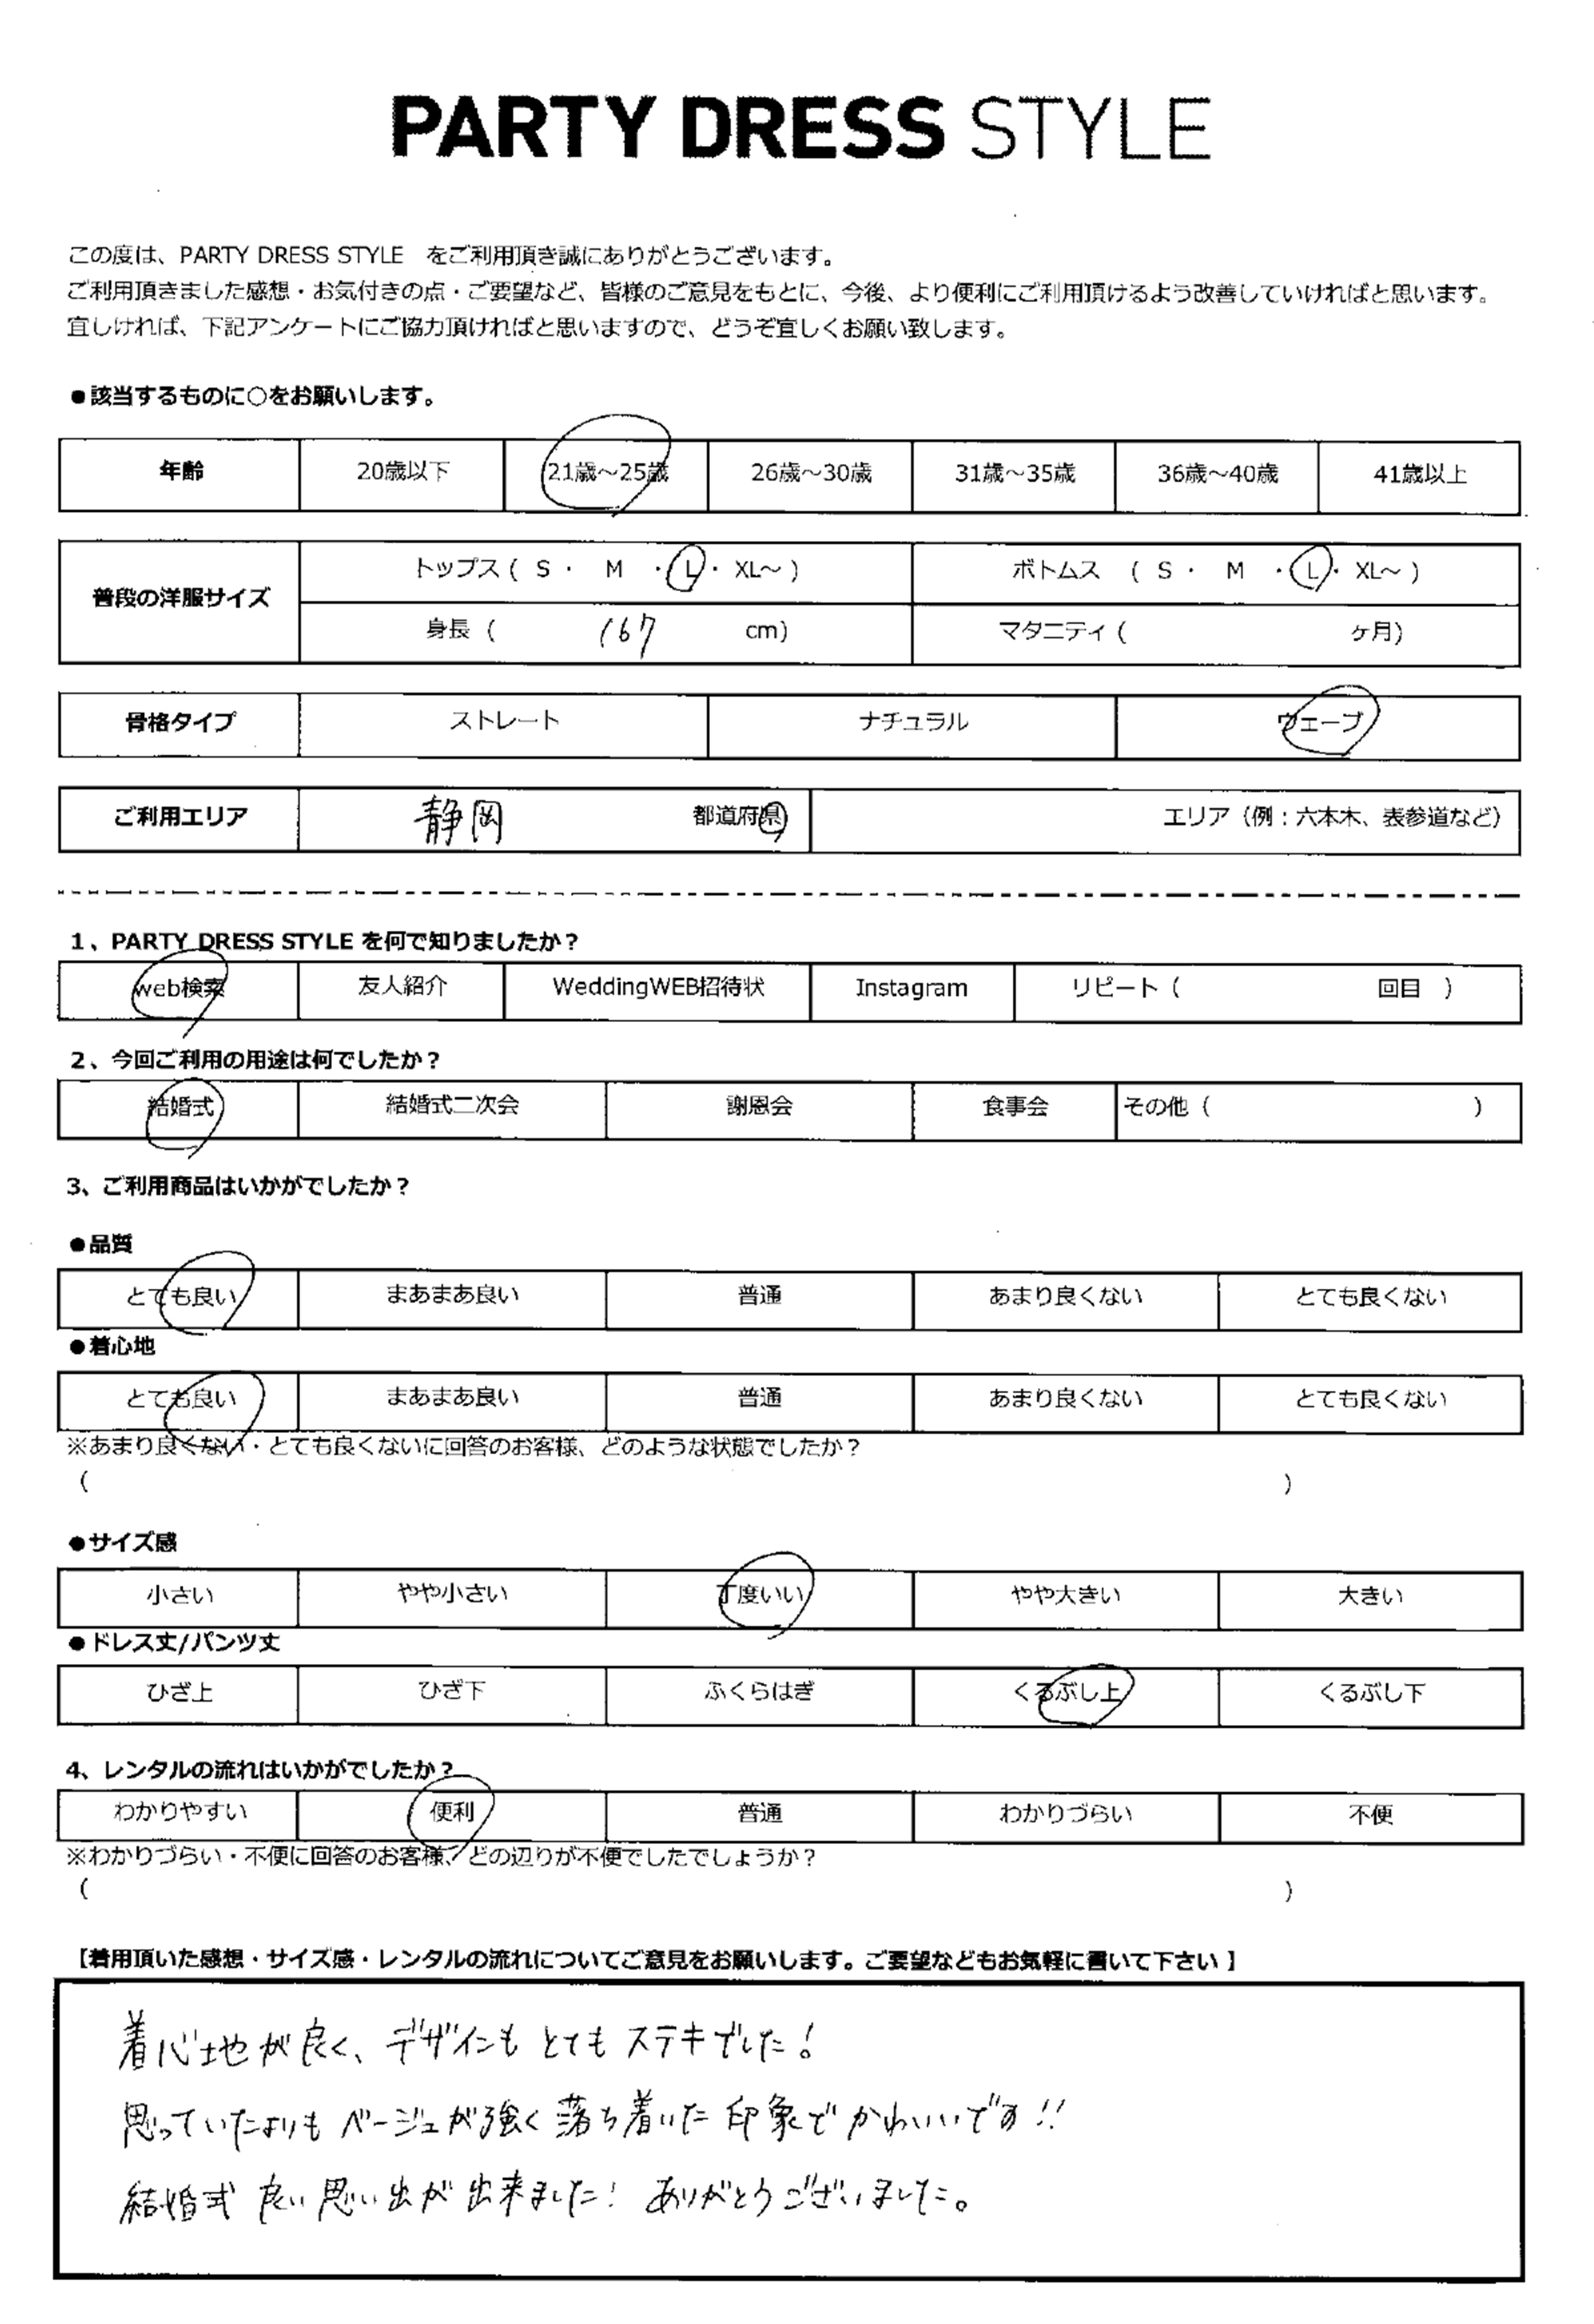 PARTY DRESS STYLE
この度は、PARTY DRESS STYLE　をご利用頂き誠にありがとうございます。
ご利用頂きました感想・お気付きの点・ご要望など、皆様のご意見をもとに、今後、より便利にご利用頂けるよう改善していければと思います。
宜しければ、下記アンケートにご協力頂ければと思いますので、どうぞ宜しくお願い致します。
●該当するものに○をお願いします。
年齢 20歳以下 21歳～25歳 26歳～30歳 31歳～35歳 36歳～40歳 41歳以上
普段の洋服サイズ
トップス ( S ・ M ・ L ・ XL～ ) ボトムス ( S ・ M ・ L ・ XL～ )
身長 ( 167 cm) マタニティ ( ヶ月)
骨格タイプ ストレート ナチュラル ウェーブ
ご利用エリア 静岡 都道府県 エリア（例：六本木、表参道など）
1、PARTY DRESS STYLE を何で知りましたか？
web検索 友人紹介 WeddingWEB招待状 Instagram リピート ( 回目 )
2、今回ご利用の用途は何でしたか？
結婚式 結婚式二次会 謝恩会 食事会 その他 ( )
3、ご利用商品はいかがでしたか？
●品質
とても良い まあまあ良い 普通 あまり良くない とても良くない
●着心地
とても良い まあまあ良い 普通 あまり良くない とても良くない
※あまり良くない・とても良くないに回答のお客様、どのような状態でしたか？
( )
●サイズ感
小さい やや小さい 丁度いい やや大きい 大きい
●ドレス丈/パンツ丈
ひざ上 ひざ下 ふくらはぎ くるぶし上 くるぶし下
4、レンタルの流れはいかがでしたか？
わかりやすい 便利 普通 わかりづらい 不便
※わかりづらい・不便に回答のお客様、どの辺りが不便でしたでしょうか？
( )
【着用頂いた感想・サイズ感・レンタルの流れについてご意見をお願いします。ご要望などもお気軽に書いて下さい 】
着心地が良く、デザインも とても ステキでした！
思っていたよりも ベージュが強く 落ち着いた 印象で かわいいです!!
結婚式 良い思い出が 出来ました！ ありがとうございました。